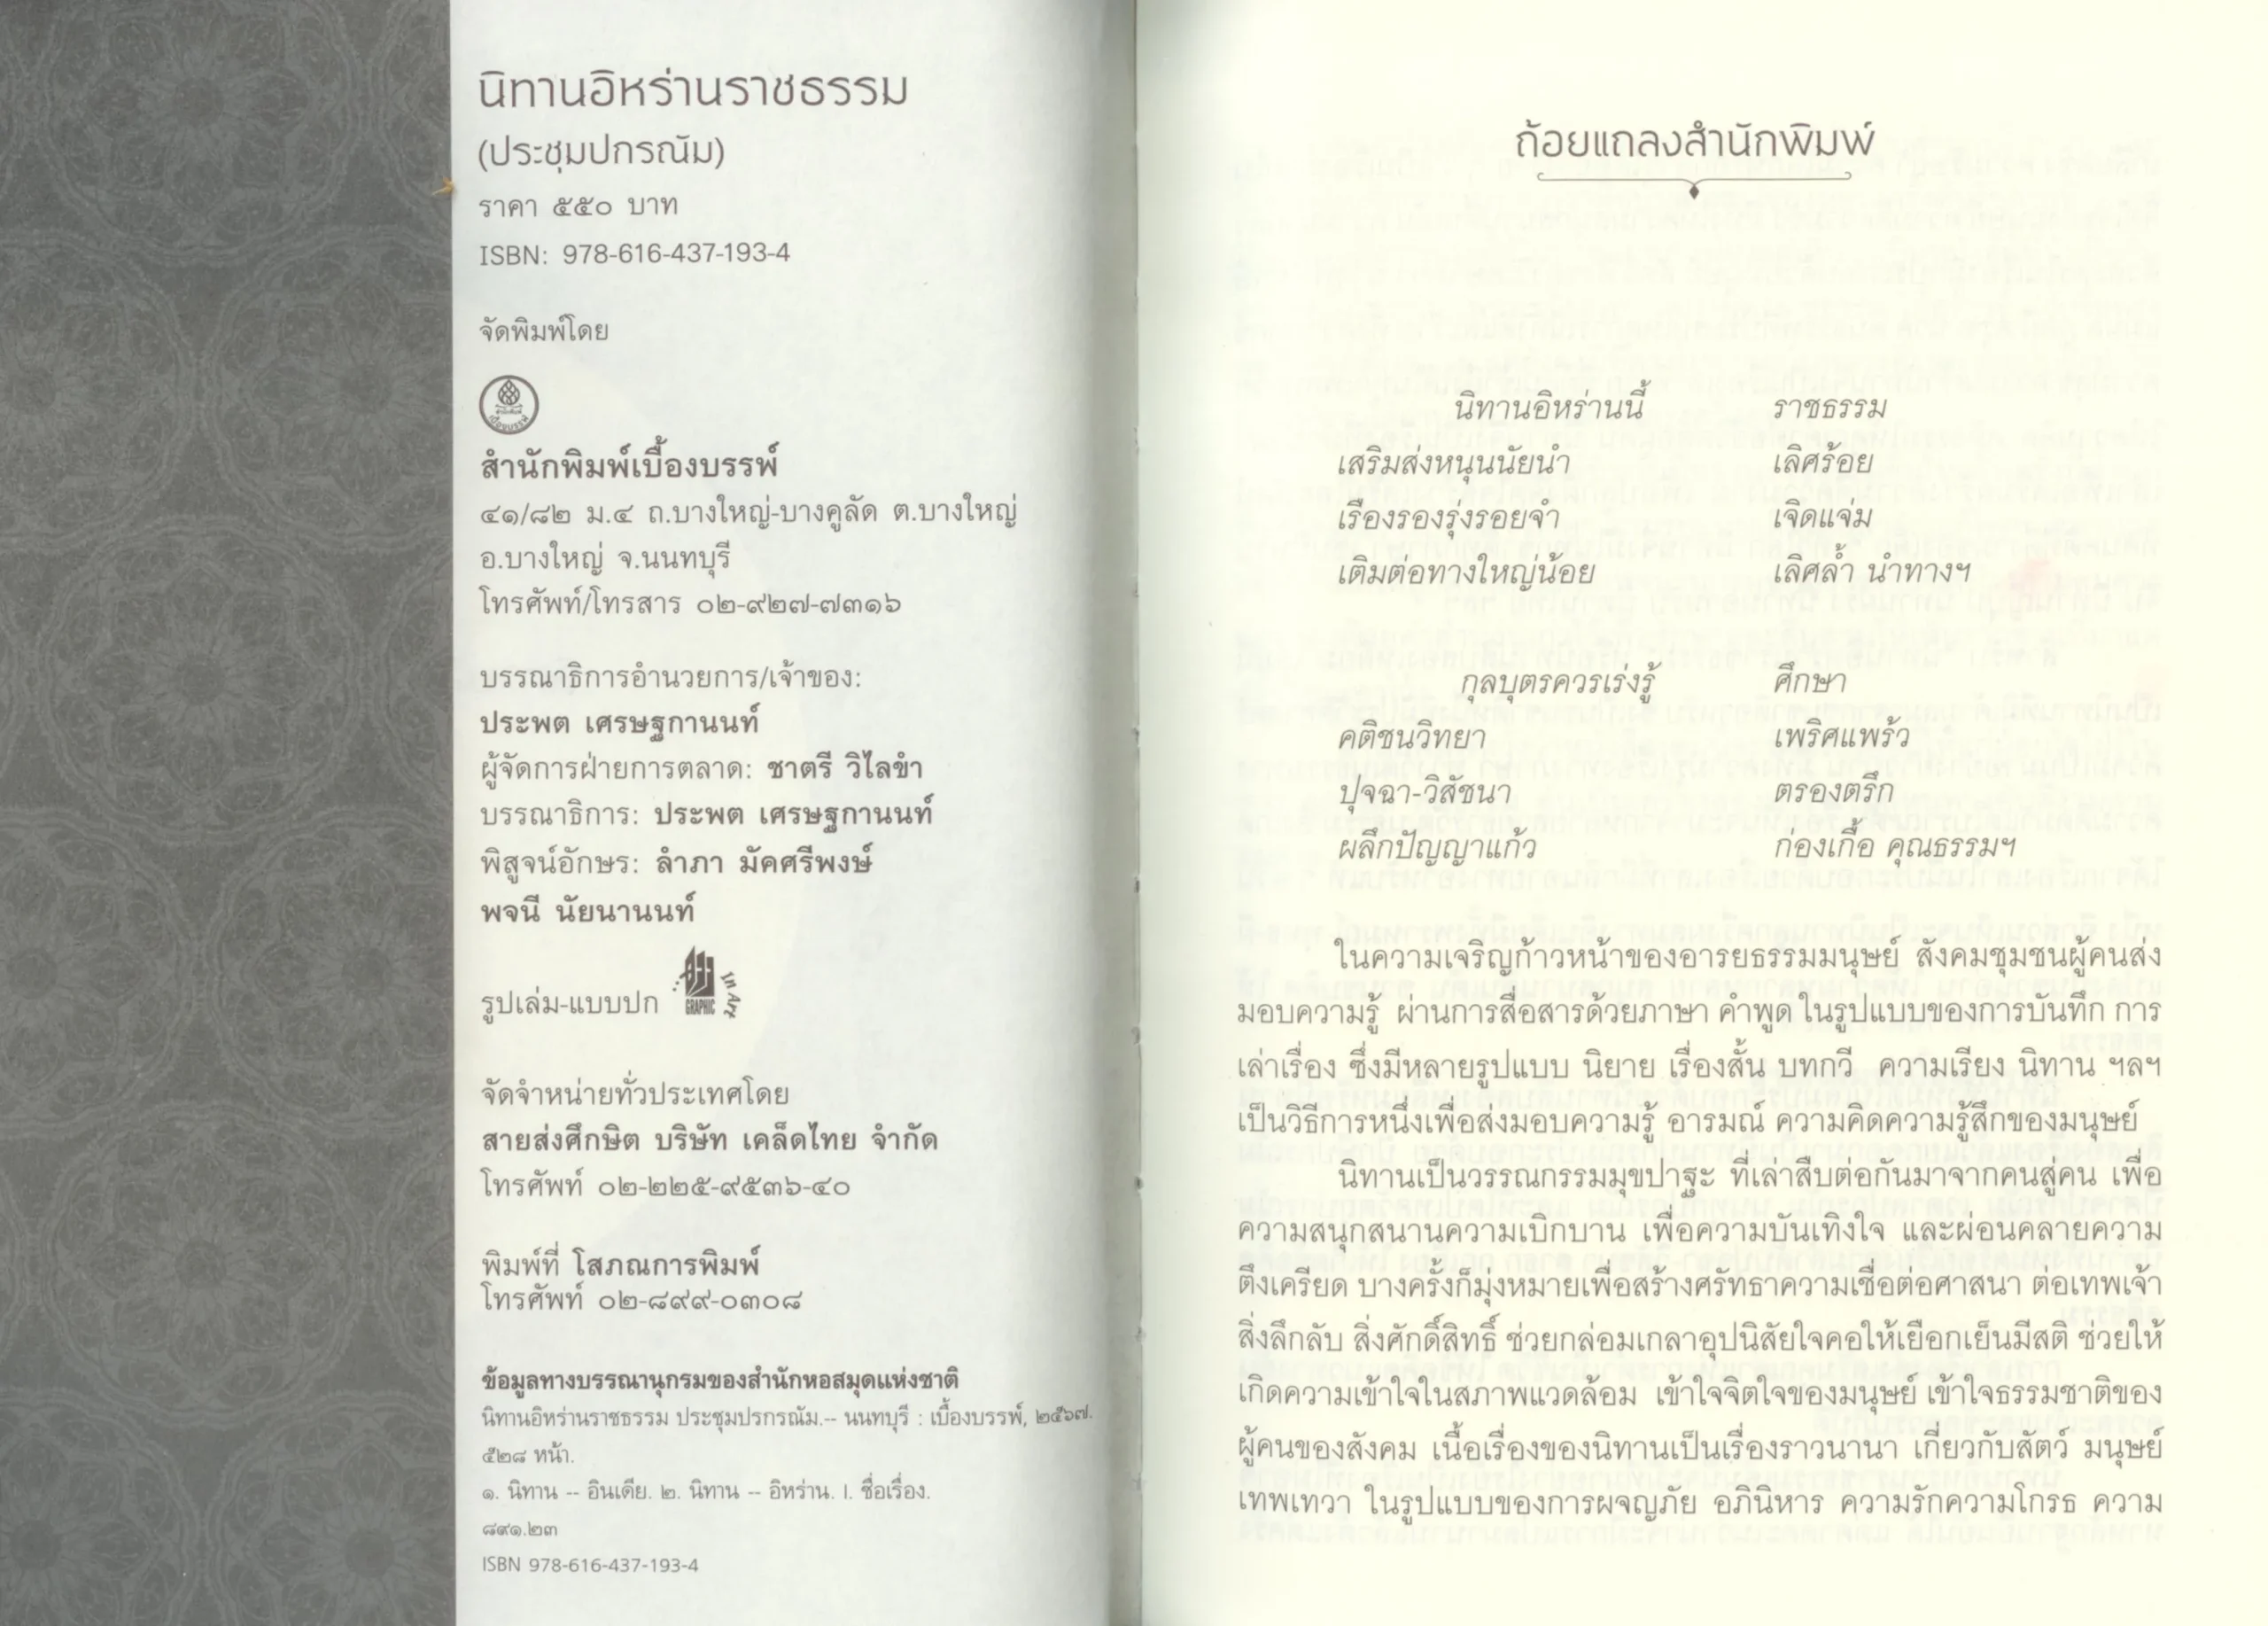 นิทานอิหร่านราชธรรม
(ประชุมปกรณัม)
ราคา ๕๕๐ บาท
ISBN: 978-616-437-193-4
จัดพิมพ์โดย
สำนักพิมพ์เบื้องบรรพ์
๔๑/๘๒ ม.๔ ถ.บางใหญ่-บางคูลัด ต.บางใหญ่
อ.บางใหญ่ จ.นนทบุรี
โทรศัพท์/โทรสาร ๐๒-๙๒๗-๗๓๑๖
บรรณาธิการอำนวยการ/เจ้าของ:
ประพต เศรษฐกานนท์
ผู้จัดการฝ่ายการตลาด: ชาตรี วิไลขำ
บรรณาธิการ: ประพต เศรษฐกานนท์
พิสูจน์อักษร: ลำภา มัคศรีพงษ์
พจนี นัยนานนท์
รูปเล่ม-แบบปก GRAPHIC In Art
จัดจำหน่ายทั่วประเทศโดย
สายส่งศึกษิต บริษัท เคล็ดไทย จำกัด
โทรศัพท์ ๐๒-๒๒๕-๙๕๓๖-๔๐
พิมพ์ที่ โสภณการพิมพ์
โทรศัพท์ ๐๒-๘๙๙-๐๓๐๘
ข้อมูลทางบรรณานุกรมของสำนักหอสมุดแห่งชาติ
นิทานอิหร่านราชธรรม ประชุมปรกรณัม.-- นนทบุรี : เบื้องบรรพ์, ๒๕๖๗.
๕๒๘ หน้า.
๑. นิทาน -- อินเดีย. ๒. นิทาน -- อิหร่าน. I. ชื่อเรื่อง.
๘๙๑.๒๓
ISBN 978-616-437-193-4
ถ้อยแถลงสำนักพิมพ์
นิทานอิหร่านนี้ ราชธรรม
เสริมส่งหนุนนัยนำ เลิศร้อย
เรืองรองรุ่งรอยจำ เจิดแจ่ม
เติมต่อทางใหญ่น้อย เลิศล้ำ นำทางฯ
กุลบุตรควรเร่งรู้ ศึกษา
คติชนวิทยา เพริศแพร้ว
ปุจฉา-วิสัชนา ตรองตรึก
ผลึกปัญญาแก้ว ก่องเกื้อ คุณธรรมฯ
ในความเจริญก้าวหน้าของอารยธรรมมนุษย์ สังคมชุมชนผู้คนส่ง
มอบความรู้ ผ่านการสื่อสารด้วยภาษา คำพูด ในรูปแบบของการบันทึก การ
เล่าเรื่อง ซึ่งมีหลายรูปแบบ นิยาย เรื่องสั้น บทกวี ความเรียง นิทาน ฯลฯ
เป็นวิธีการหนึ่งเพื่อส่งมอบความรู้ อารมณ์ ความคิดความรู้สึกของมนุษย์
นิทานเป็นวรรณกรรมมุขปาฐะ ที่เล่าสืบต่อกันมาจากคนสู่คน เพื่อ
ความสนุกสนานความเบิกบาน เพื่อความบันเทิงใจ และผ่อนคลายความ
ตึงเครียด บางครั้งก็มุ่งหมายเพื่อสร้างศรัทธาความเชื่อต่อศาสนา ต่อเทพเจ้า
สิ่งลึกลับ สิ่งศักดิ์สิทธิ์ ช่วยกล่อมเกลาอุปนิสัยใจคอให้เยือกเย็นมีสติ ช่วยให้
เกิดความเข้าใจในสภาพแวดล้อม เข้าใจจิตใจของมนุษย์ เข้าใจธรรมชาติของ
ผู้คนของสังคม เนื้อเรื่องของนิทานเป็นเรื่องราวนานา เกี่ยวกับสัตว์ มนุษย์
เทพเทวา ในรูปแบบของการผจญภัย อภินิหาร ความรักความโกรธ ความ